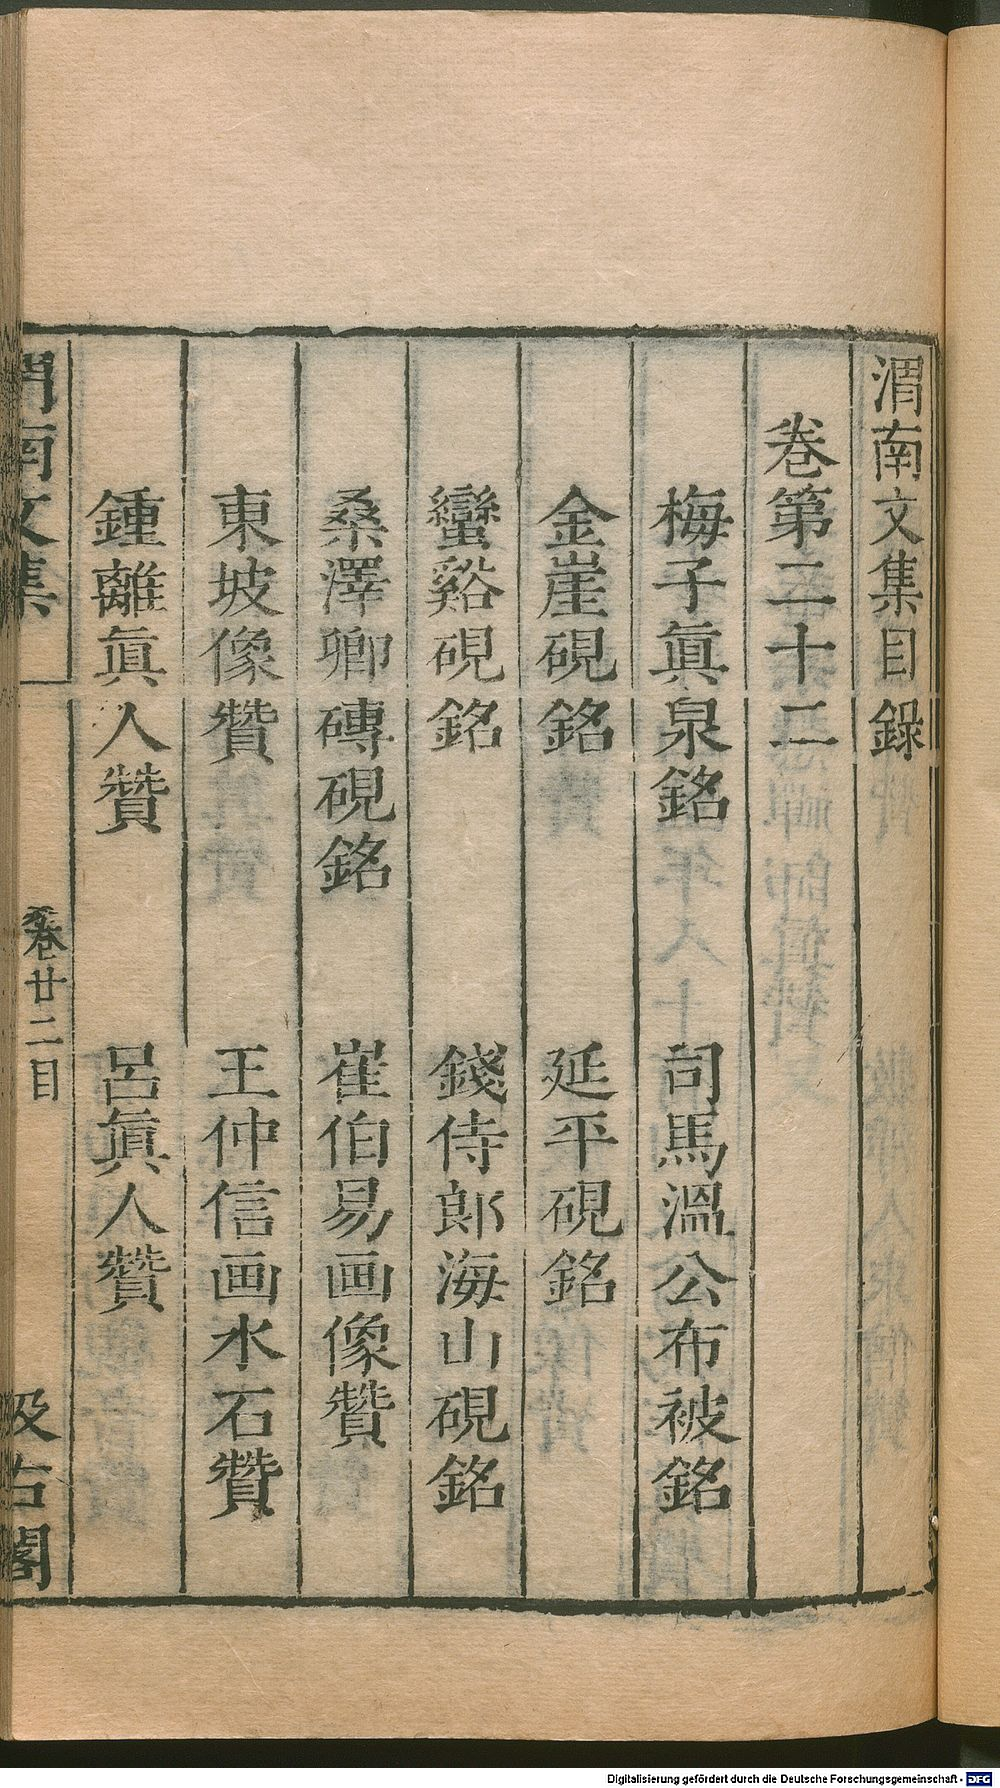 渭南文集目錄
卷第二十二
梅子眞泉銘 司馬溫公布被銘
金崖硯銘 延平硯銘
蠻谿硯銘 錢侍郎海山硯銘
桑澤卿磚硯銘 崔伯易画像贊
東坡像贊 王仲信画水石贊
鍾離眞人贊 呂眞人贊
渭南文集 卷廿二目 汲古閣
Digitalisierung gefördert durch die Deutsche Forschungsgemeinschaft - DFG